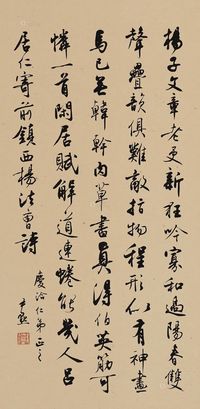 楊子文章老更新狂吟寡和過陽春雙
聲疊韻俱難敵指物程形似有神畫
馬已無韓幹肉草書真得伯英筋可
憐一首閑居賦解道連蜷能幾人呂
居仁寄前鎮西楊法曹詩
慶洽仁弟正之
尹默